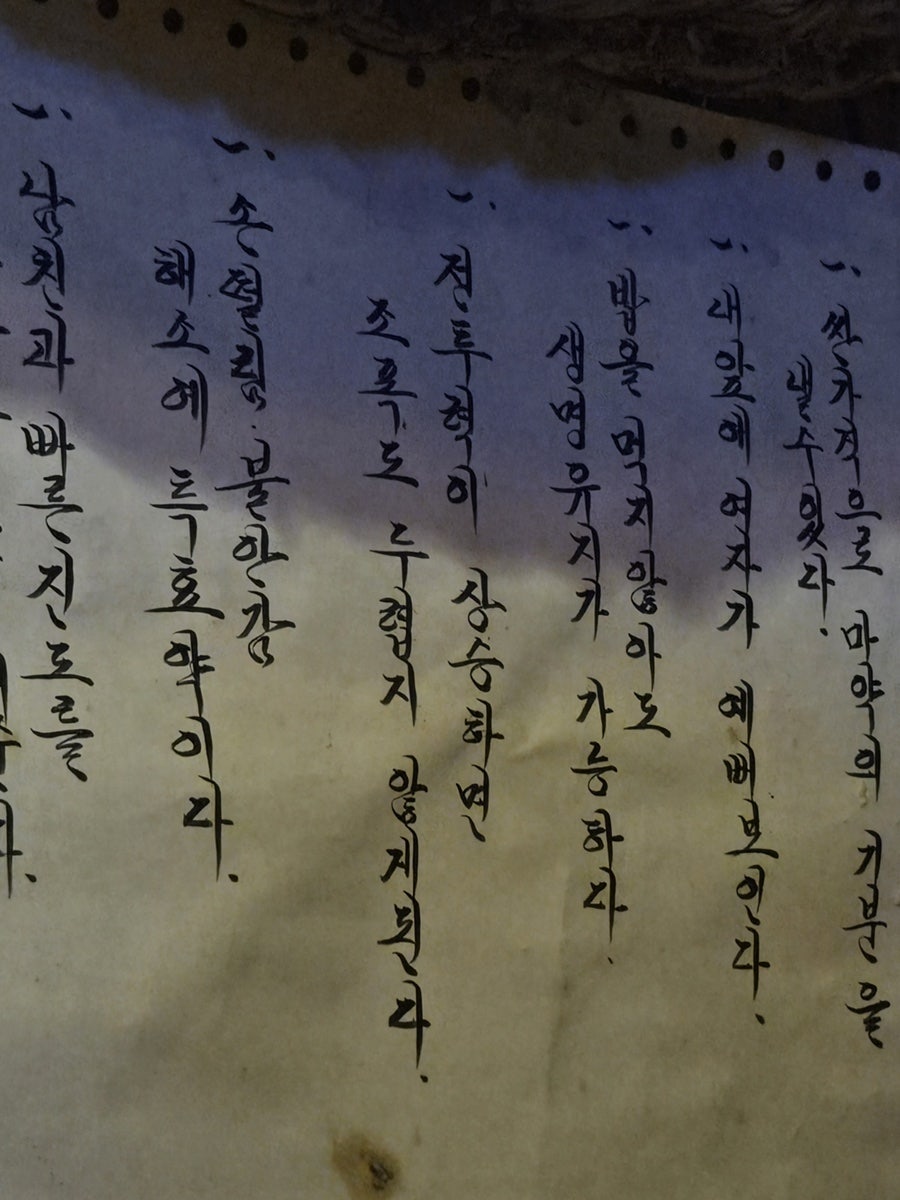 一. 싼가격으로 마약의 기분을
낼수있다.
一. 내앞에 여자가 예뻐보인다.
一. 밥을 먹지않아도
생명유지가 가능하다.
一. 전투력이 상승하면
조폭도 두렵지 않게된다.
一. 손떨림. 불안감
해소에 특효약이다.
一. 남친과 빠른진도를